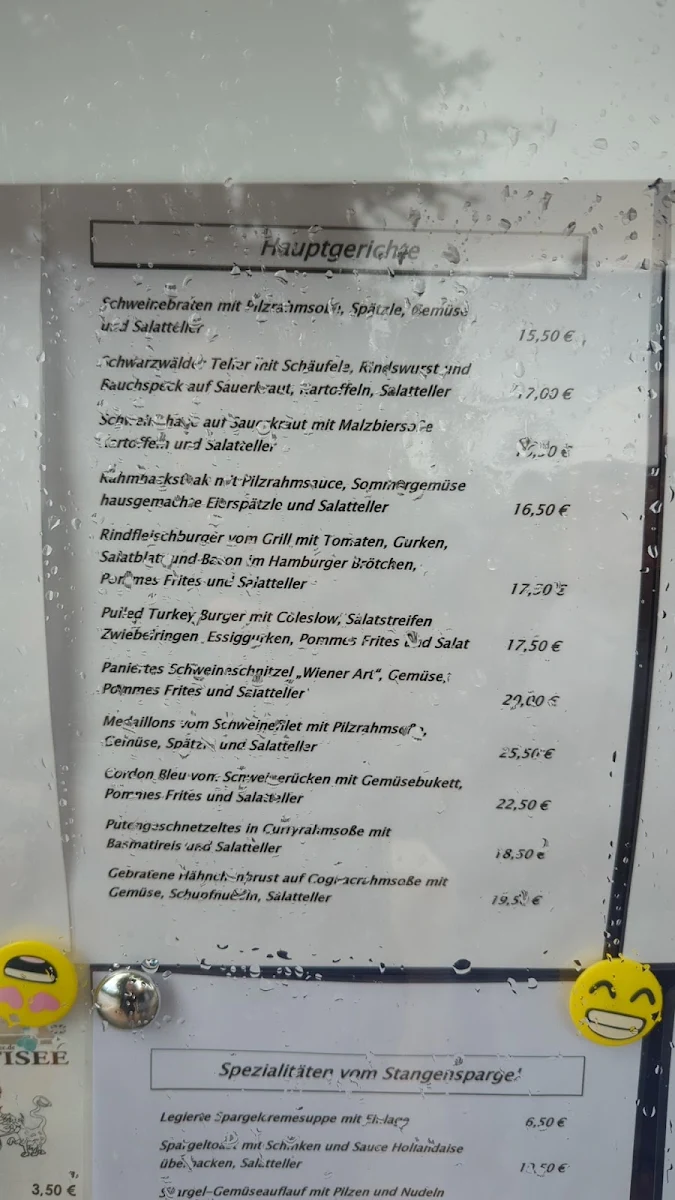 Hauptgerichte
Schweinebraten mit Pilzrahmsoße, Spätzle, Gemüse
und Salatteller
15,50 €
Schwarzwälder Teller mit Schäufele, Rindswurst und
Rauchspeck auf Sauerkraut, Kartoffeln, Salatteller
17,00 €
auf Sauerkraut mit Malzbiersoße
Kartoffeln und Salatteller
Rahmhacksteak mit Pilzrahmsauce, Sommergemüse
hausgemachte Eierspätzle und Salatteller
16,50 €
Rindfleischburger vom Grill mit Tomaten, Gurken,
Salatblatt und Bacon im Hamburger Brötchen,
Pommes Frites und Salatteller
17,50 €
Pulled Turkey Burger mit Coleslow, Salatstreifen
Zwiebelringen, Essiggurken, Pommes Frites und Salat
17,50 €
Paniertes Schweineschnitzel „Wiener Art“, Gemüse,
Pommes Frites und Salatteller
20,00 €
Medaillons vom Schweinefilet mit Pilzrahmsoße,
Gemüse, Spätzle und Salatteller
25,50 €
Cordon Bleu vom Schweinerücken mit Gemüsebukett,
Pommes Frites und Salatteller
22,50 €
Putengeschnetzeltes in Curryrahmsoße mit
Basmatireis und Salatteller
18,50 €
Gebratene Hähnchenbrust auf Cognacrahmsoße mit
Gemüse, Schupfnudeln, Salatteller
19,50 €
TISEE
3,50 €
Spezialitäten vom Stangenspargel
Legierte Spargelcremesuppe mit
6,50 €
Spargeltoast mit Schinken und Sauce Hollandaise
überbacken, Salatteller
Spargel-Gemüseauflauf mit Pilzen und Nudeln